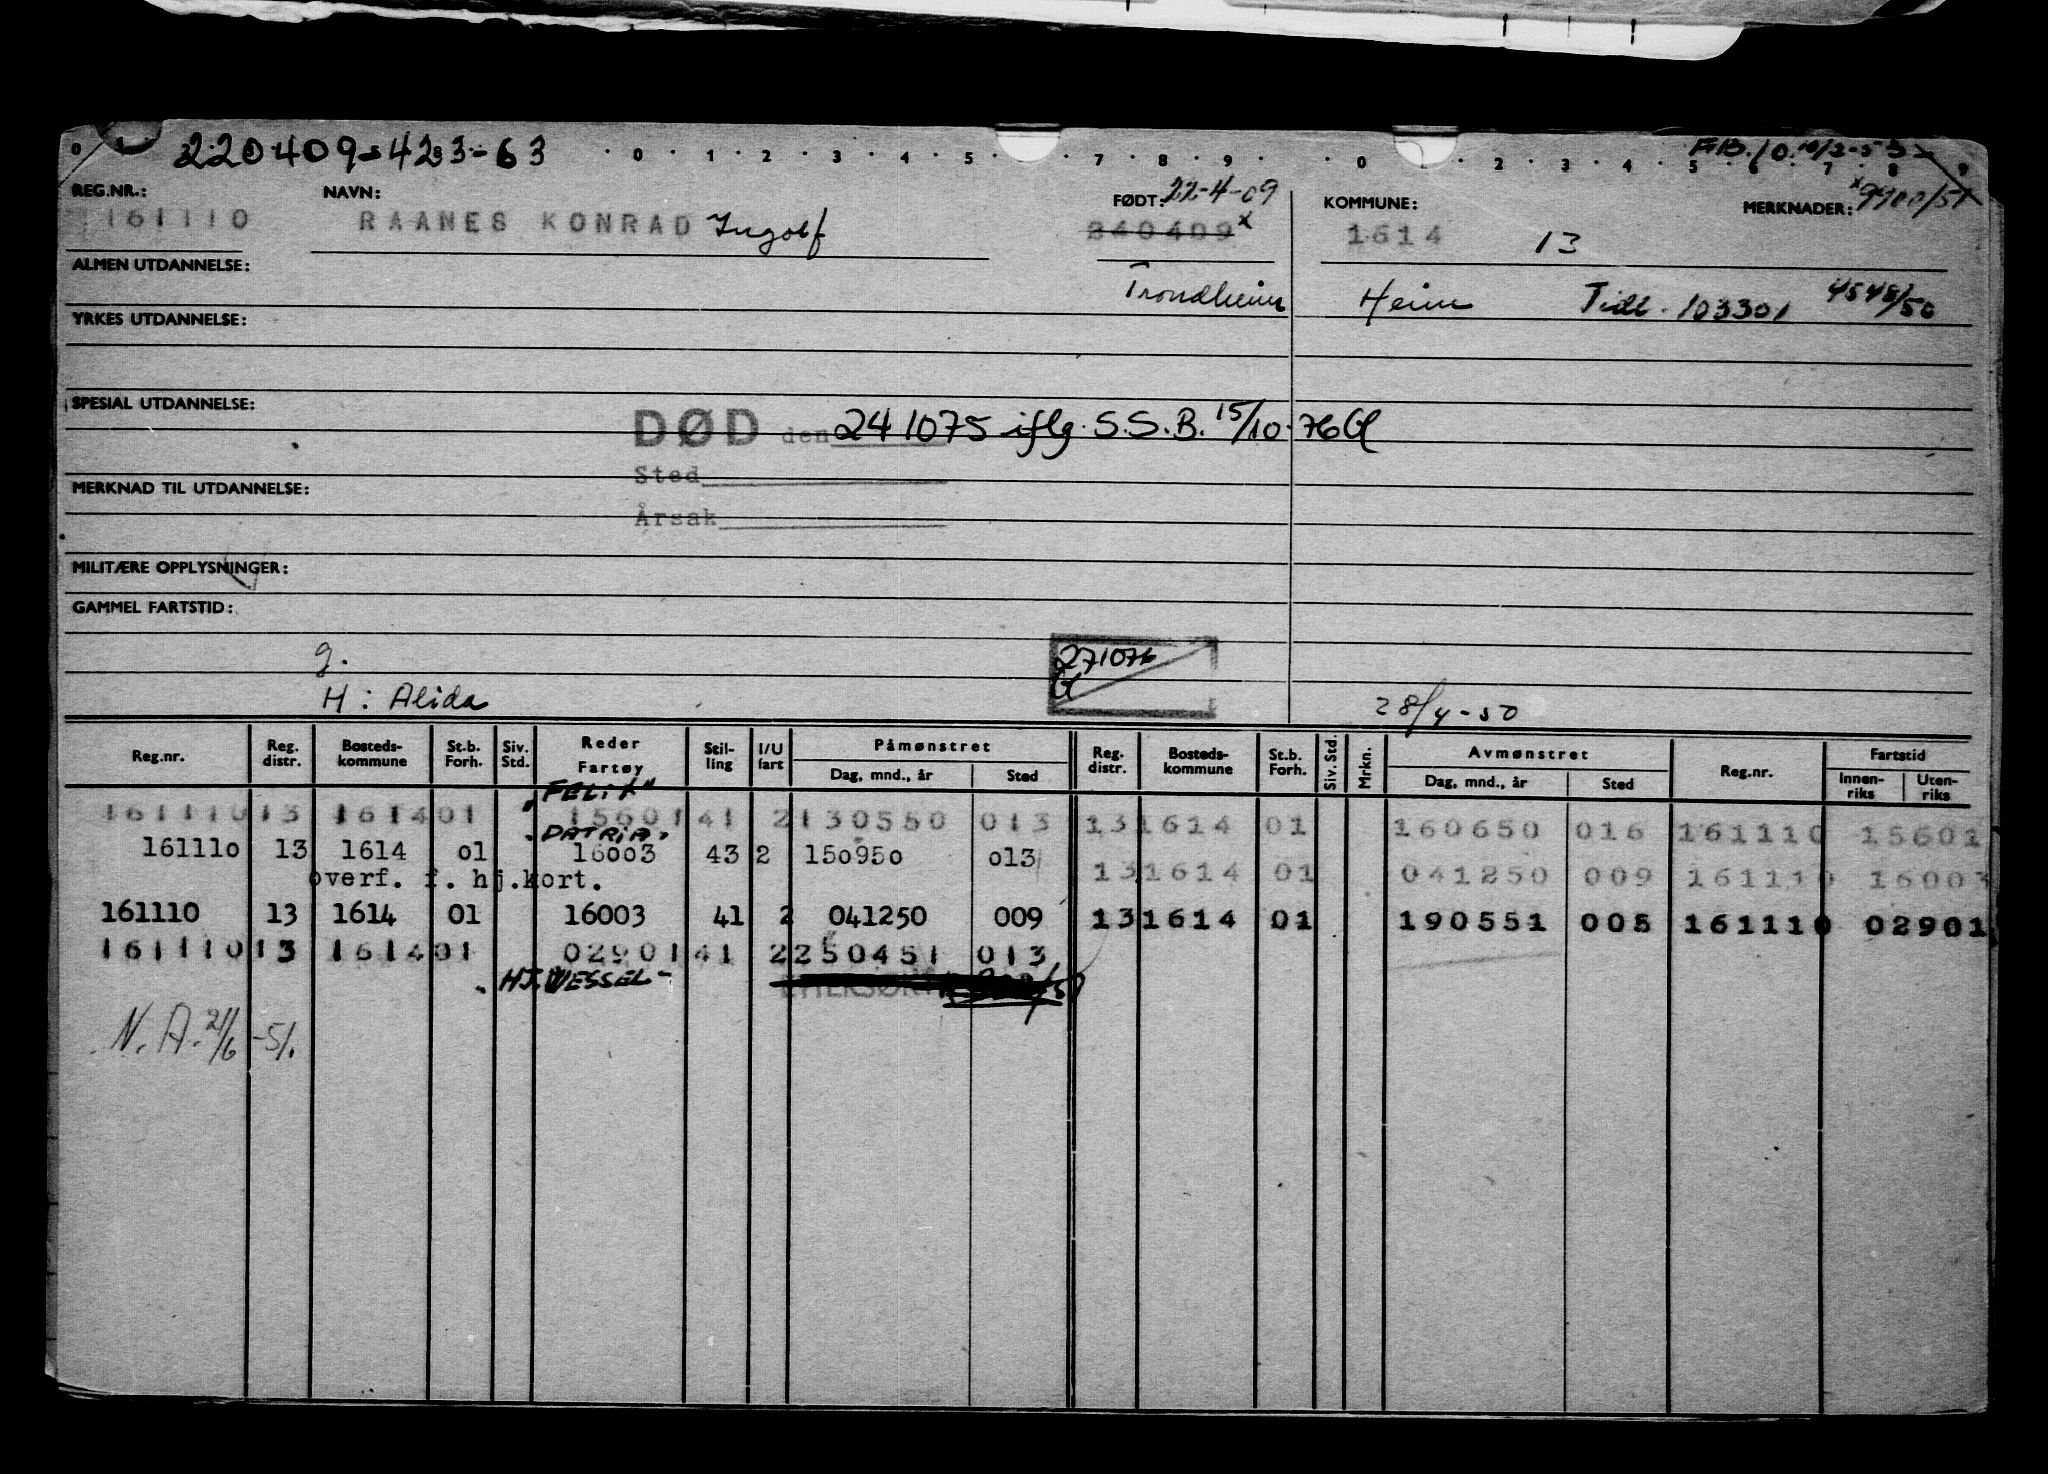 220409-423-63 0 1 2 3 4 5 7 8 9 0 2 3 4 5 6 7 8 9 FB. 10.10/2-53
REG.NR.: NAVN: FØDT: 22-4-09 KOMMUNE: MERKNADER: x 9900/51
161110 RAANES KONRAD Ingolf 240409 x 1614 13
ALMEN UTDANNELSE: Trondheim Heim Tidl. 103301 4548/50
YRKES UTDANNELSE:
SPESIAL UTDANNELSE:
DØD den 241075 iflg. S.S.B. 15/10-76 Gl
Sted
MERKNAD TIL UTDANNELSE:
Årsak
MILITÆRE OPPLYSNINGER:
GAMMEL FARTSTID:
g. 271076
Gl
H: Alida 28/4-50
Reg.nr. Reg. distr. Bosteds-kommune St.b. Forh. Siv. Std. Reder Fartøy Stil-ling I/U fart Påmønstret Dag, mnd., år Sted Reg. distr. Bosteds-kommune St.b. Forh. Siv. Std. Mrkn. Avmønstret Dag, mnd., år Sted Reg.nr. Fartstid Innen-riks Uten-riks
"FELIX"
161110 13 1614 01 15601 41 2 130550 013 13 1614 01 160650 016 161110 15601
"PATRIA"
161110 13 1614 01 16003 43 2 150950 013
overf. f. hj.kort. 13 1614 01 041250 009 161110 16003
161110 13 1614 01 16003 41 2 041250 009 13 1614 01 190551 005 161110 02901
161110 13 1614 01 02901 41 2 250451 013
"HJ. WESSEL" ETTERSØKT
N.A. 21/6-51.